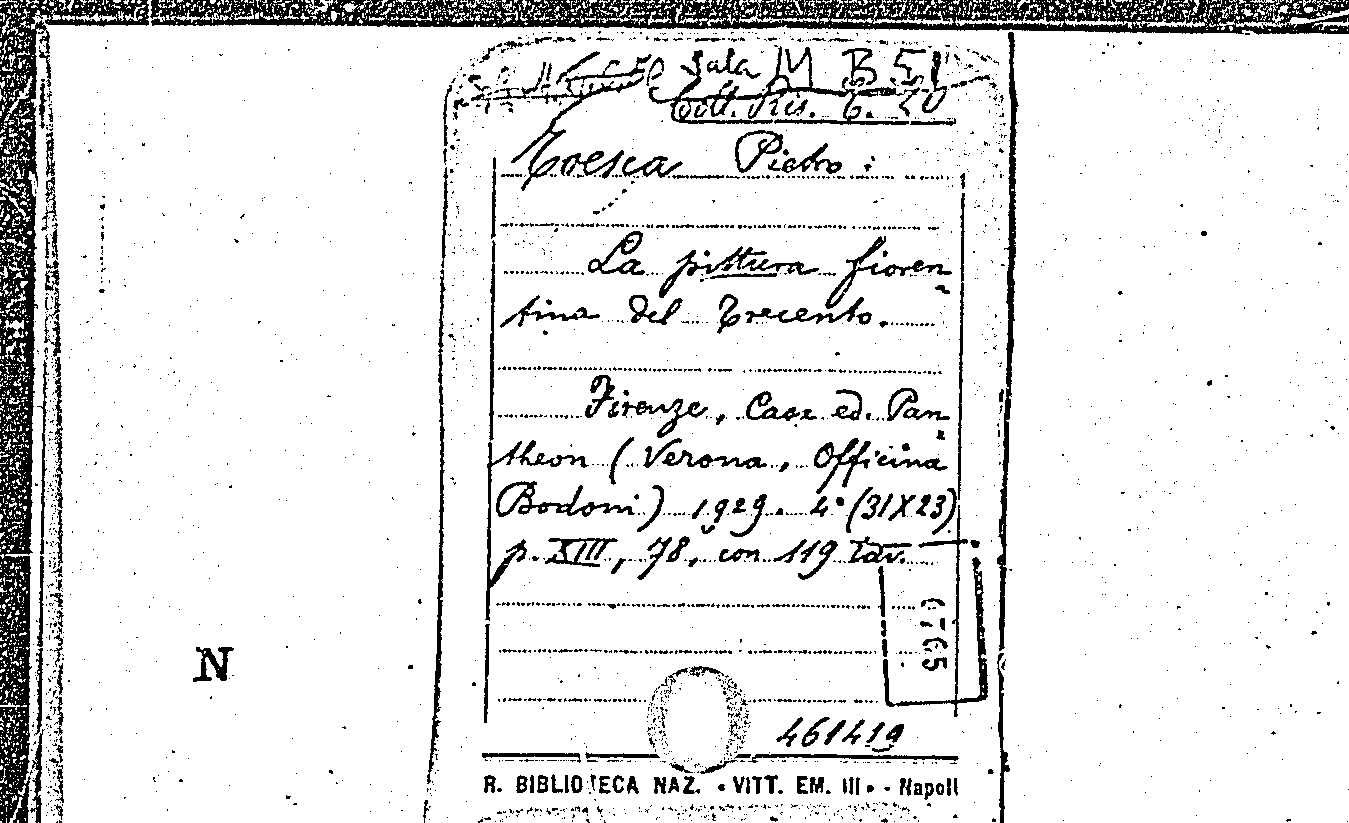 Sala M. B. 51
Coll. Ris. 6. 20
Toesca Pietro:
La pittura fioren-
tina del Trecento.
Firenze, Casa ed. Pan-
theon (Verona, Officina
Bodoni) 1929. 4° (31X23)
p. XIII, 78, con 119 tav.
0765
N
461419
R. BIBLIOTECA NAZ. « VITT. EM. III » - Napoli